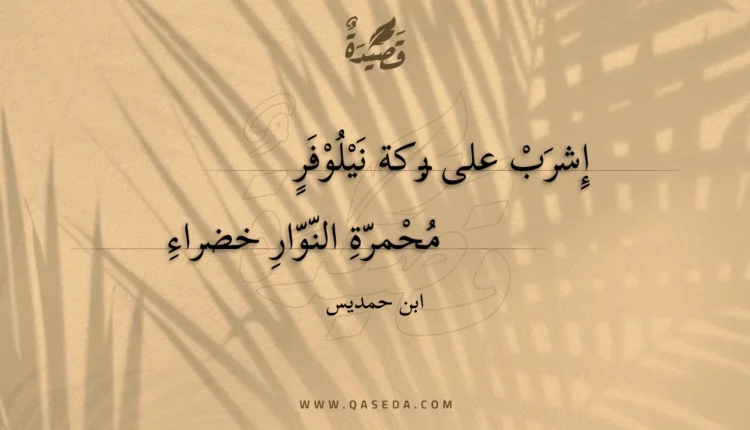 قَصِيْدَةٌ
إِشرَبْ على بِركة نَيْلُوْفَرٍ
مُحْمرّةِ النّوّارِ خضراءِ
ابن حمديس
WWW.QASEDA.COM